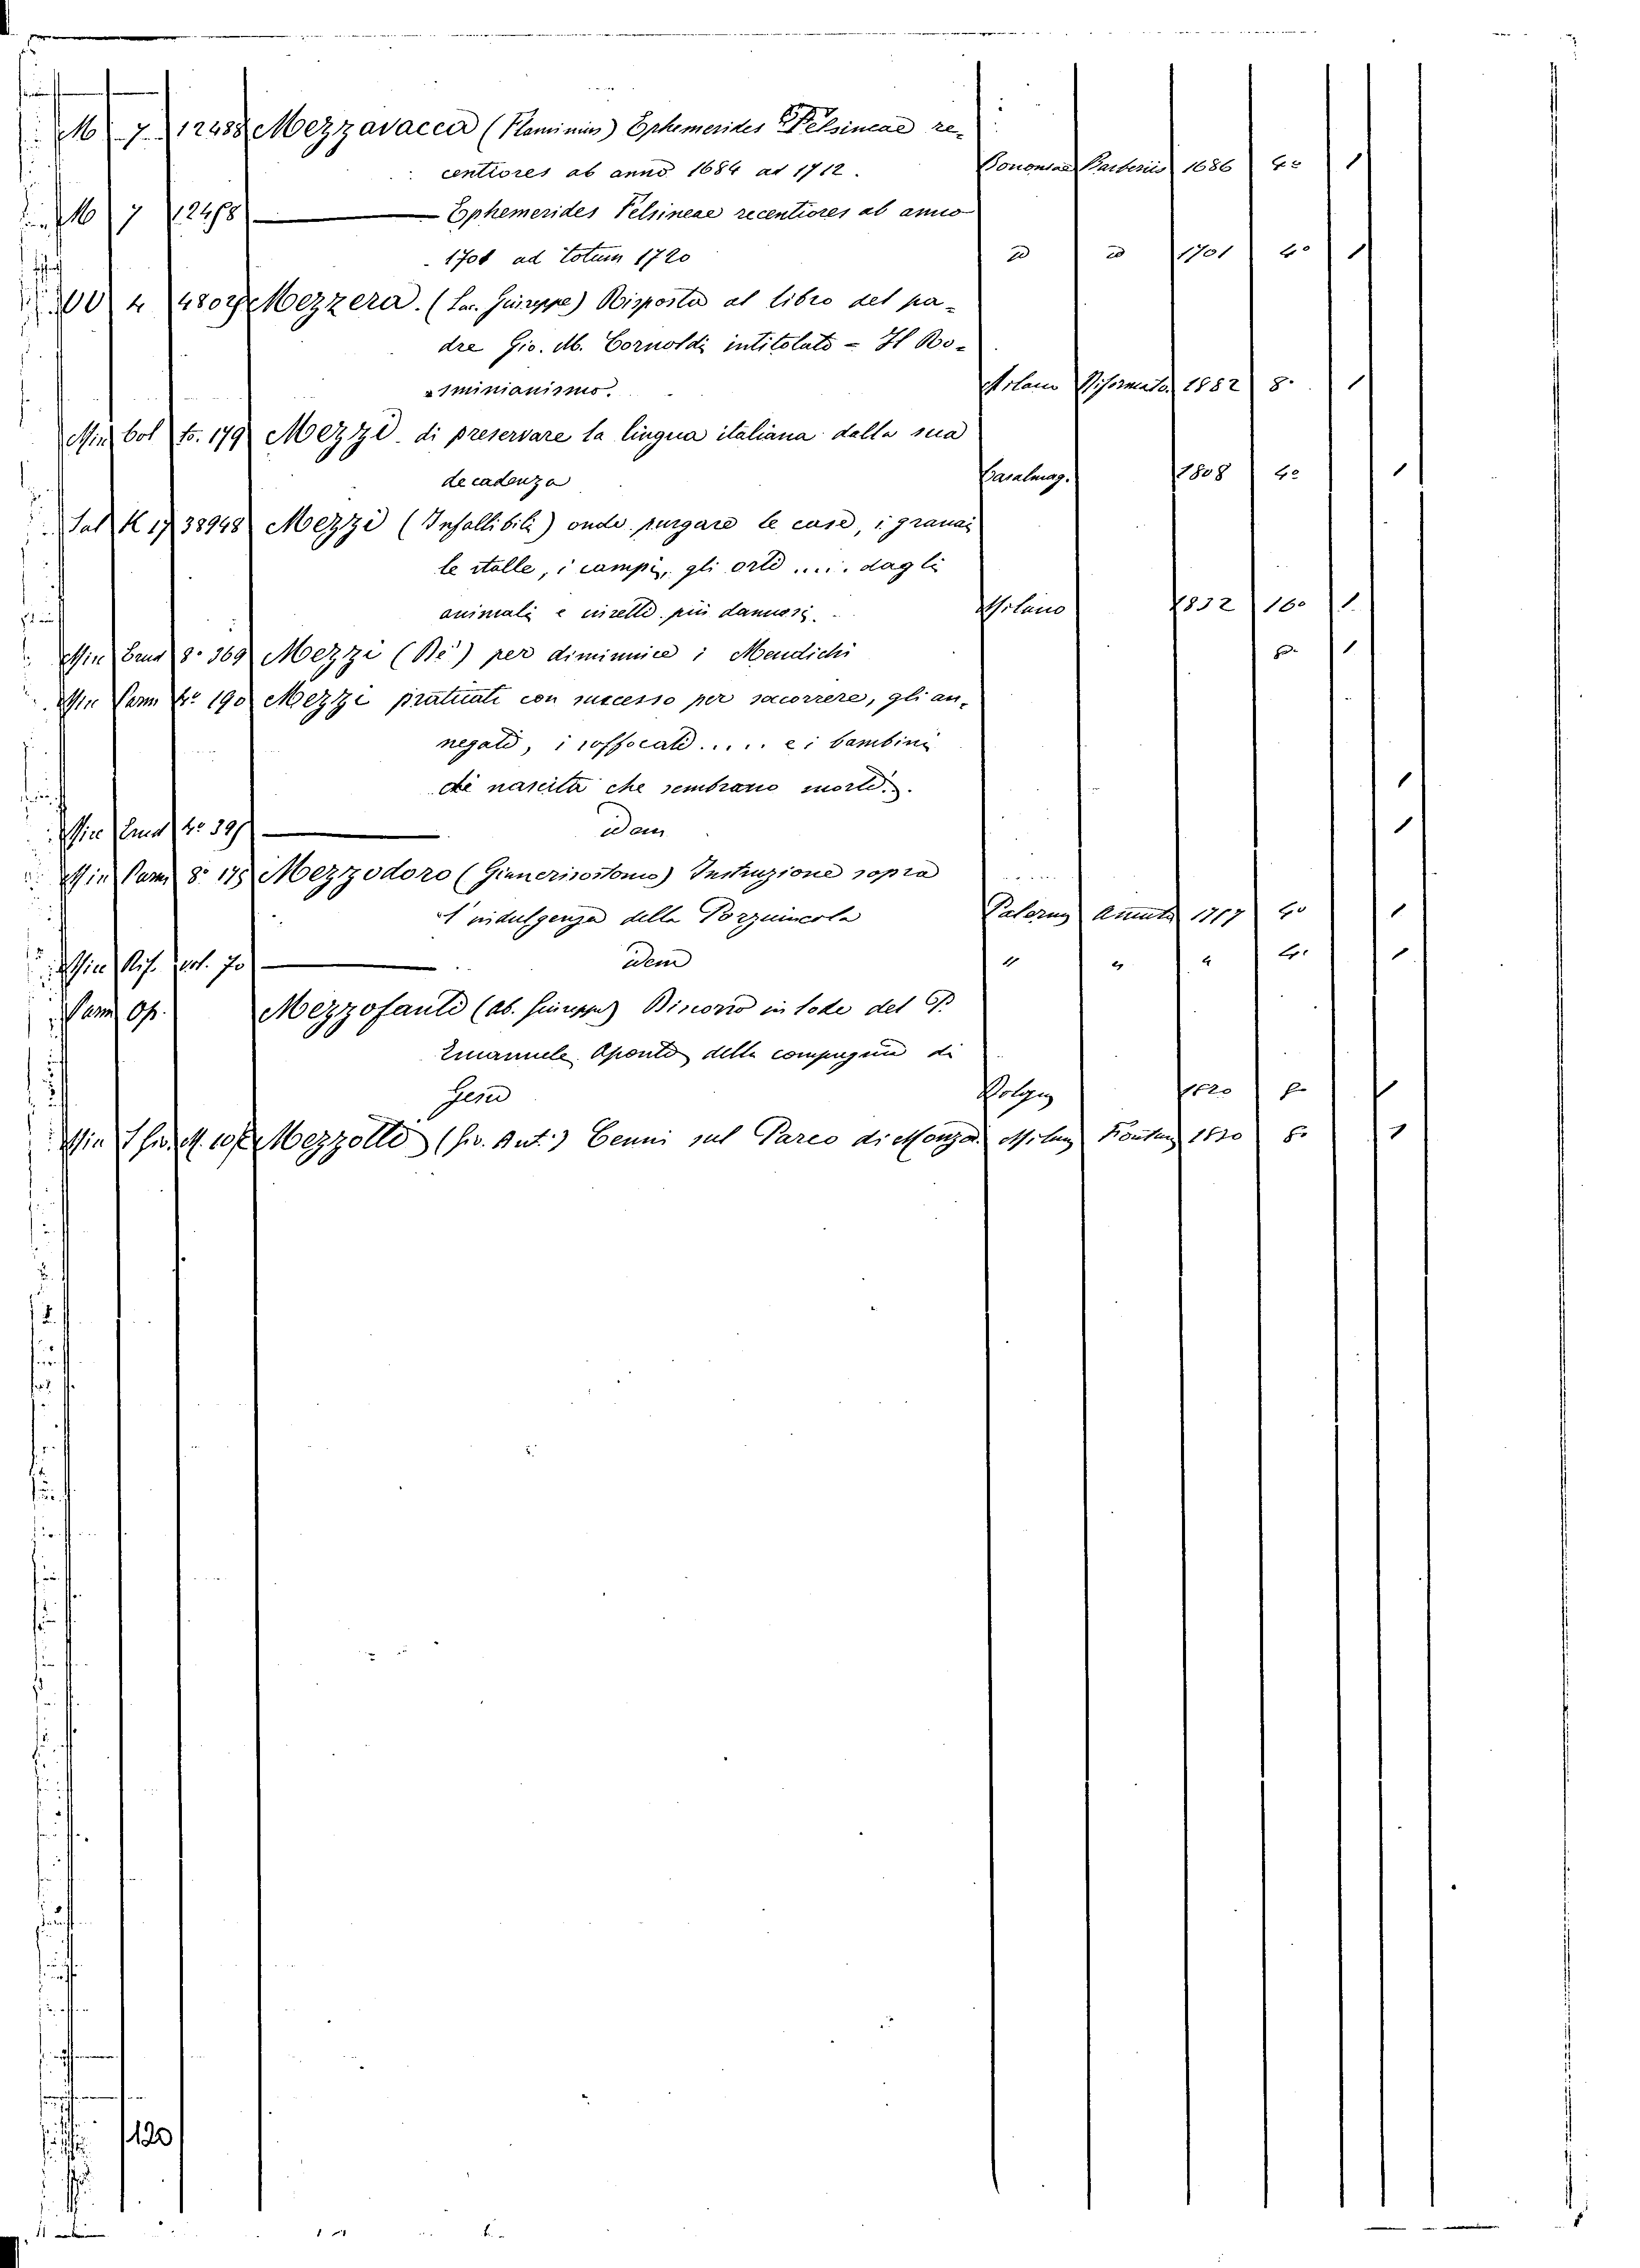 M 7 12488 Mezzavacca (Flaminius) Ephemerides Felsineae re-
centiores ab anno 1684 ad 1712. Bononiae Barberius 1686 4° 1
M 7 12498 Ephemerides Felsineae recentiores ab anno
1701 ad totum 1720 1701 4° 1
OO 4 Mezzera. (Giuseppe) Risposta al libro del pa-
dre Gio. M. Cornoldi intitolato = Il Ro-
sminianismo. Milano 1882 8° 1
Min bol 179 Mezzi di preservare la lingua italiana dalla sua
decadenza Casalmag. 1808 4° 1
Sal K 17 38948 Mezzi (Infallibili) onde purgare le case, i granai
le stalle, i campi, gli orti ..... dagli
animali e insetti più dannosi. Milano 1832 16° 1
Min 8° 369 Mezzi (Dei) per diminuire i Mendichi 8° 1
Min 4° 190 Mezzi praticati con successo per soccorrere, gli an-
negati, i soffocati ..... e i bambini
di nascita che sembrano morti. 1
Min 4° 391 idem 1
Min 8° 175 Mezzodoro (Giancrisostomo) Instruzione sopra
l'indulgenza della Porziuncola Palermo 4° 1
Min Rif. 70 idem " " " 4° 1
Op. Mezzofanti (ab. Giuseppe) Discorso in lode del P.
Emanuele Aponte della compagnia di
Gesù Bologna 1820 8° 1
Min Mezzotti (Ant.) Cenni sul Parco di Monza. Milano Fontana 1830 8° 1
120